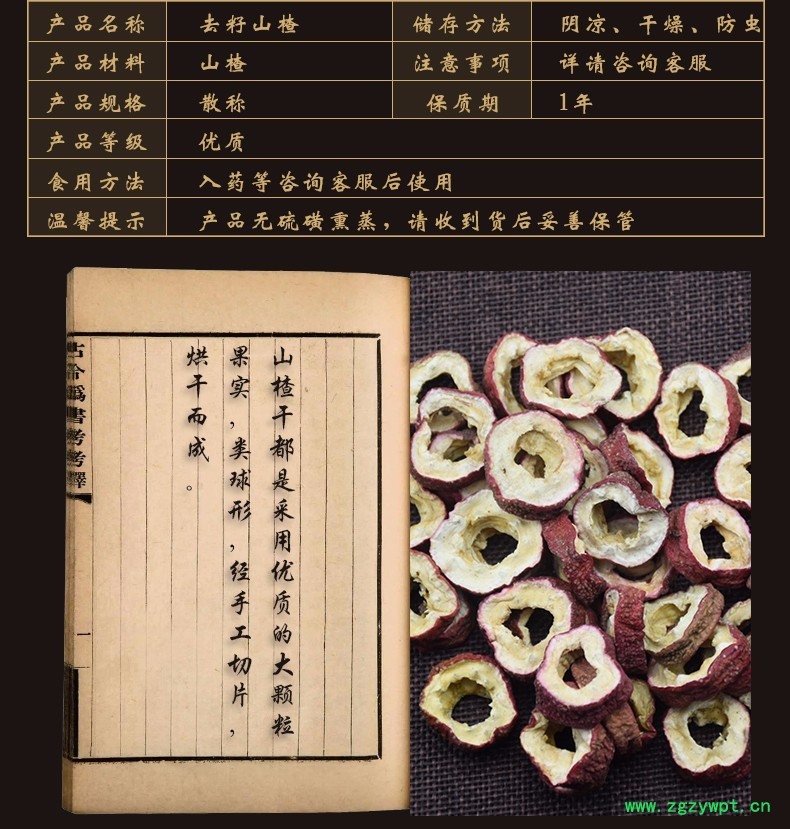 产品名称 去籽山楂 储存方法 阴凉、干燥、防虫
产品材料 山楂 注意事项 详请咨询客服
产品规格 散称 保质期 1年
产品等级 优质
食用方法 入药等咨询客服后使用
温馨提示 产品无硫磺熏蒸，请收到货后妥善保管
山楂干都是采用优质的大颗粒
果实，类球形，经手工切片，
烘干而成。
古今偽書考考釋
一
www.zgzywpt.cn